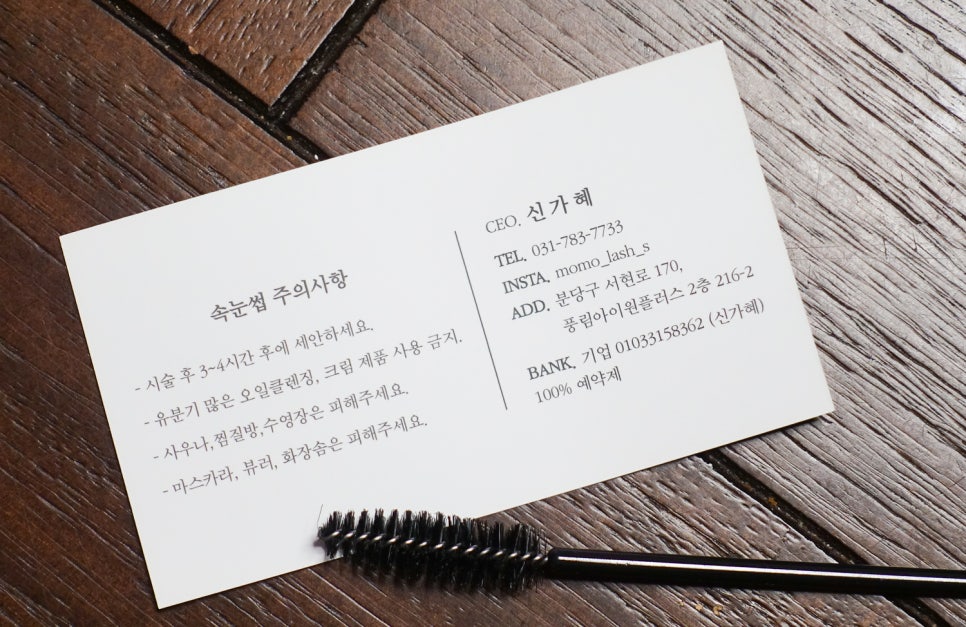 속눈썹 주의사항
- 시술 후 3~4시간 후에 세안하세요.
- 유분기 많은 오일클렌징, 크림 제품 사용 금지.
- 사우나,찜질방,수영장은 피해주세요.
- 마스카라, 뷰러, 화장솜은 피해주세요.
CEO. 신가혜
TEL. 031-783-7733
INSTA. momo_lash_s
ADD. 분당구 서현로 170,
풍림아이원플러스 2층 216-2
BANK. 기업 01033158362 (신가혜)
100% 예약제